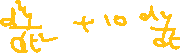 d²y/dt² + 10 dy/dt